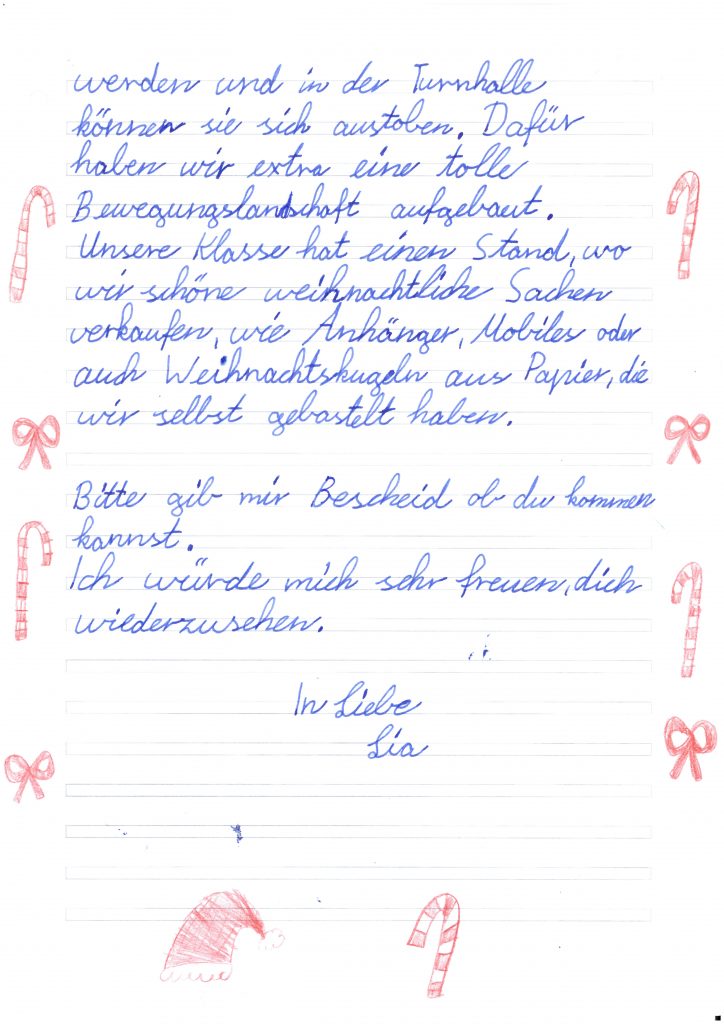 werden und in der Turnhalle
können sie sich austoben. Dafür
haben wir extra eine tolle
Bewegungslandschaft aufgebaut.
Unsere Klasse hat einen Stand, wo
wir schöne weihnachtliche Sachen
verkaufen, wie Anhänger, Mobiles oder
auch Weihnachtskugeln aus Papier, die
wir selbst gebastelt haben.
Bitte gib mir Bescheid ob du kommen
kannst.
Ich würde mich sehr freuen, dich
wiederzusehen.
In Liebe
Lia